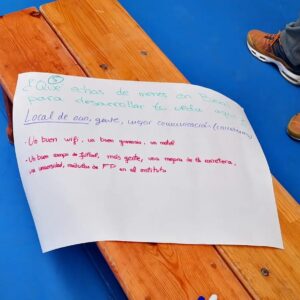 5
¿Qué echas de menos en
para desarrollar tu vida aquí?
Local de ocio, gente, mejor comunicación (carreteras)
- Un buen wifi, un buen gimnasio, un hotel
- Un buen campo de fútbol, más gente, una mejora de la carretera,
una universidad, módulos de FP en el instituto